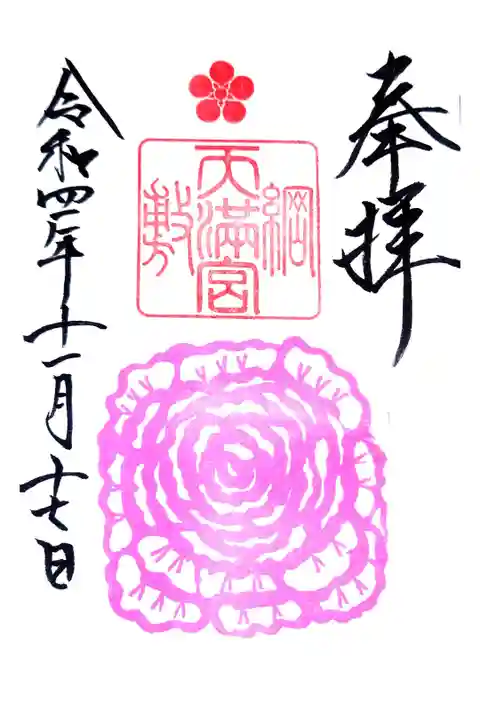 奉拝
綱
天満宮
敷
令和四年十一月十七日